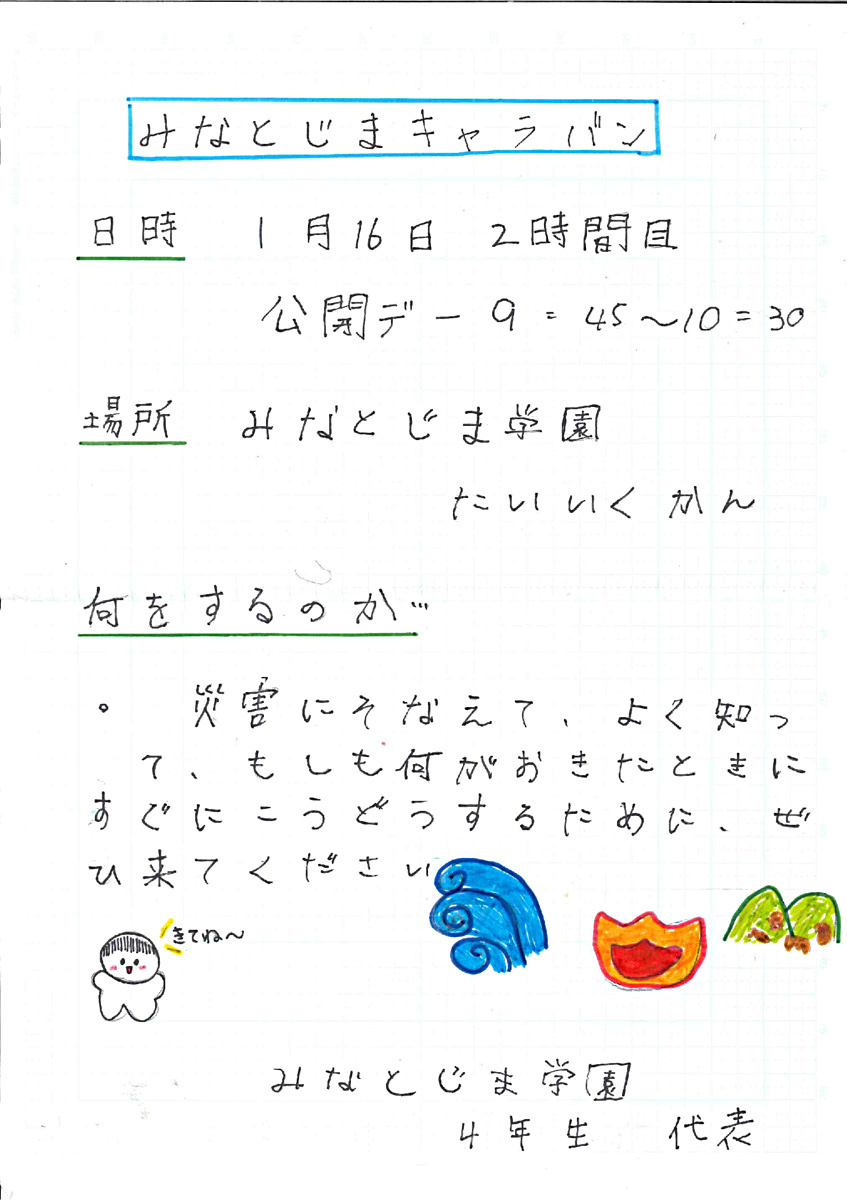 みなとじまキャラバン
日時 1月16日 2時間目
公開デー 9:45～10:30
場所 みなとじま学園
たいいくかん
何をするのか…
・ 災害にそなえて、よく知っ
て、もしも何がおきたときに
すぐにこうどうするために、ぜ
ひ来てください
きてね～
みなとじま学園
4年生 代表